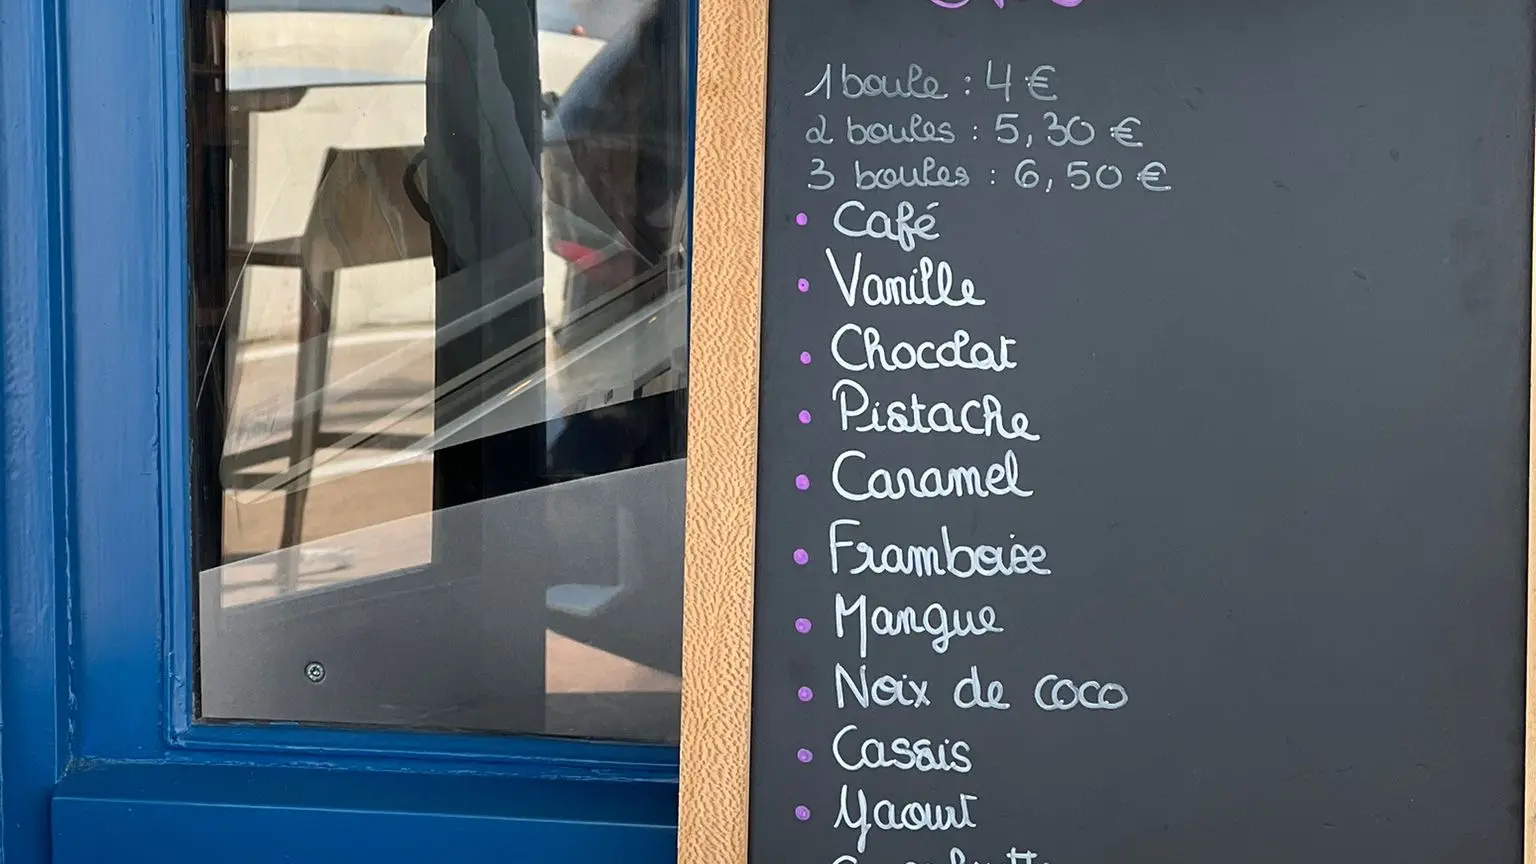 1 boule : 4 €
2 boules : 5,30 €
3 boules : 6,50 €
• Café
• Vanille
• Chocolat
• Pistache
• Caramel
• Framboise
• Mangue
• Noix de coco
• Cassis
• Yaourt